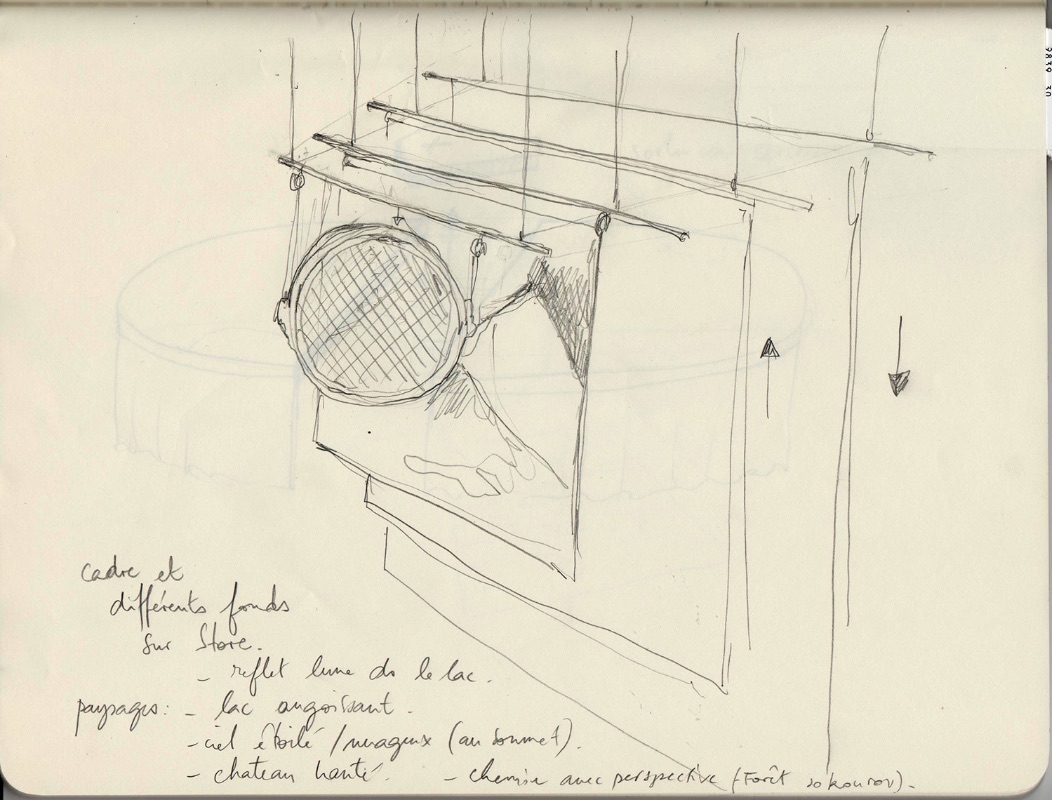 cadre et
différents fonds
sur Store.
- reflet lune ds le lac.
paysages: - lac angoissant.
- ciel étoilé / nuageux (au sommet).
- chateau hanté. - chemise avec perspective (Forêt sokourov).